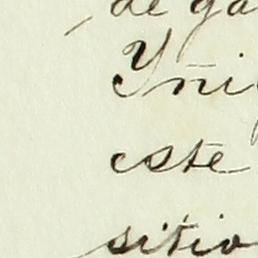 de ga
Yñi
este
sitio